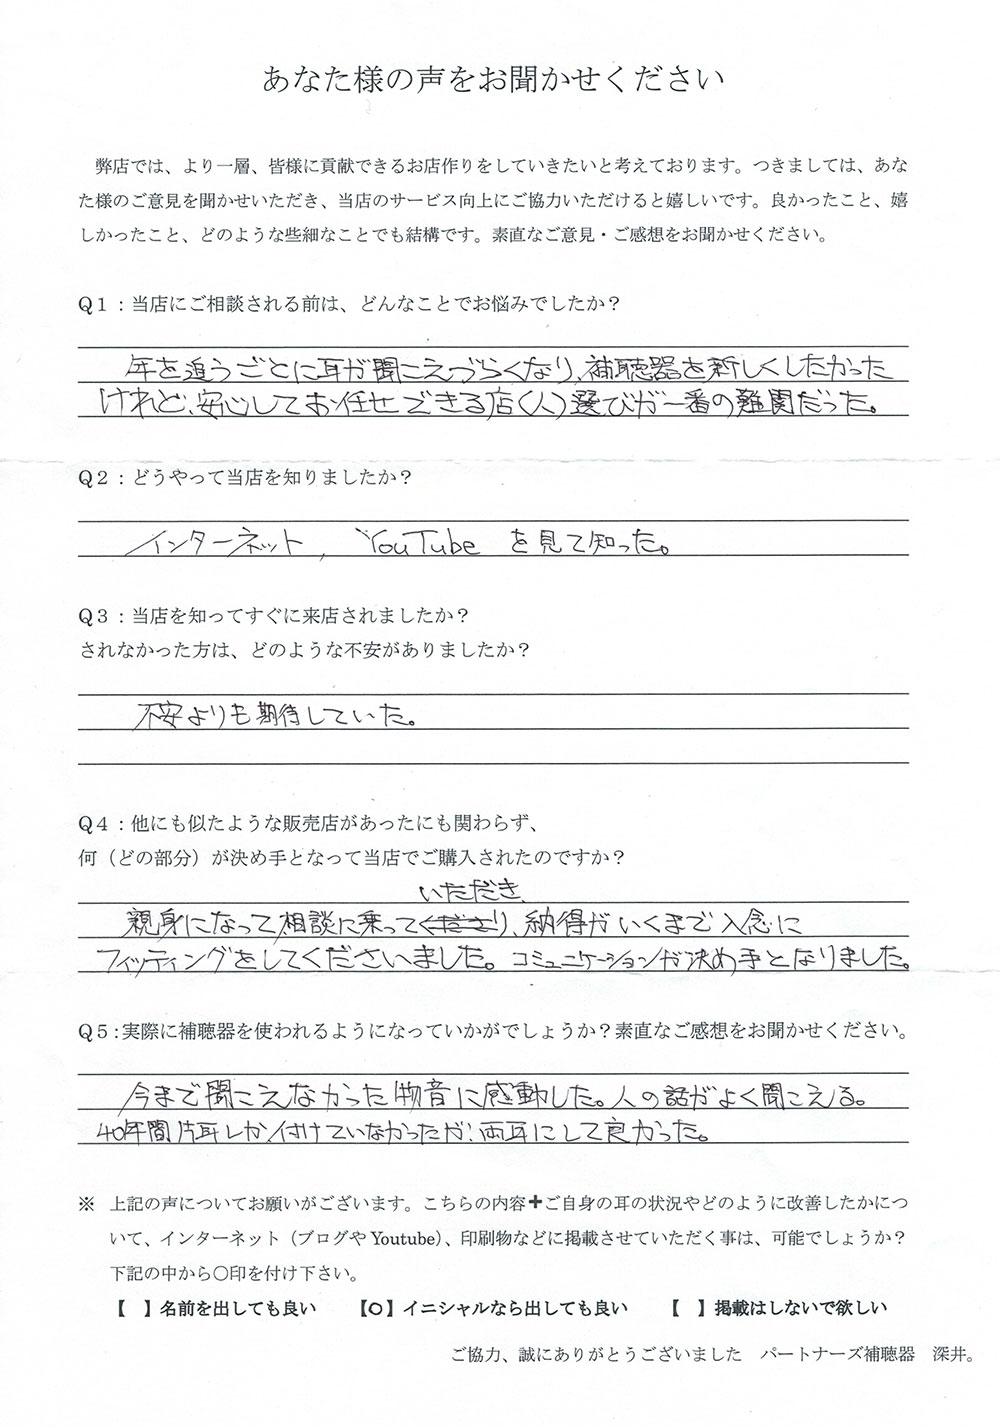 あなた様の声をお聞かせください
弊店では、より一層、皆様に貢献できるお店作りをしていきたいと考えております。つきましては、あな
た様のご意見を聞かせいただき、当店のサービス向上にご協力いただけると嬉しいです。良かったこと、嬉
しかったこと、どのような些細なことでも結構です。素直なご意見・ご感想をお聞かせください。
Q1：当店にご相談される前は、どんなことでお悩みでしたか？
年を追うごとに耳が聞こえづらくなり、補聴器を新しくしたかった
けれど、安心してお任せできる店（人）選びが一番の難関だった。
Q2：どうやって当店を知りましたか？
インターネット, YouTube を見て知った。
Q3：当店を知ってすぐに来店されましたか？
されなかった方は、どのような不安がありましたか？
不安よりも期待していた。
Q4：他にも似たような販売店があったにも関わらず、
何（どの部分）が決め手となって当店でご購入されたのですか？
いただき、
親身になって相談に乗ってくださり、納得がいくまで入念に
フィッティングをしてくださいました。コミュニケーションが決め手となりました。
Q5：実際に補聴器を使われるようになっていかがでしょうか？素直なご感想をお聞かせください。
今まで聞こえなかった物音に感動した。人の話がよく聞こえる。
40年間片耳しか付けていなかったが、両耳にして良かった。
※ 上記の声についてお願いがございます。こちらの内容＋ご自身の耳の状況やどのように改善したかにつ
いて、インターネット（ブログや Youtube）、印刷物などに掲載させていただく事は、可能でしょうか？
下記の中から〇印を付け下さい。
【 】名前を出しても良い 【〇】イニシャルなら出しても良い 【 】掲載はしないで欲しい
ご協力、誠にありがとうございました パートナーズ補聴器 深井。